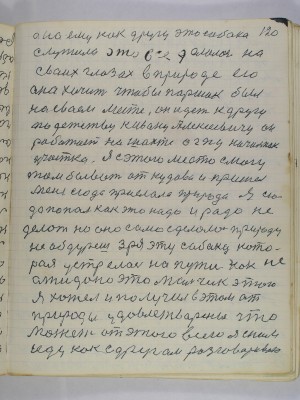 она ему как другу это собака 120
служила это все делалось на
своих глазах в природе его
она хочит чтобы паршак был
на своем месте, он идет к другу
по детству к Ивану Алексевичу он
работает на шахте старш начальник
участка. Я с этого место смогу
там бывает от кудова и пришел
меня сюда прислала природа Я сю
да попал как это надо и радо не
делат но оно само сделало природу
не обдуриш зря эту собаку кото-
рая устрелась на пути как не
ожидано это мальчик этого
Я хотел и получил в этом от
природы удовлетворение что
может от этого всего я с ним
еду как с другом разговариваю